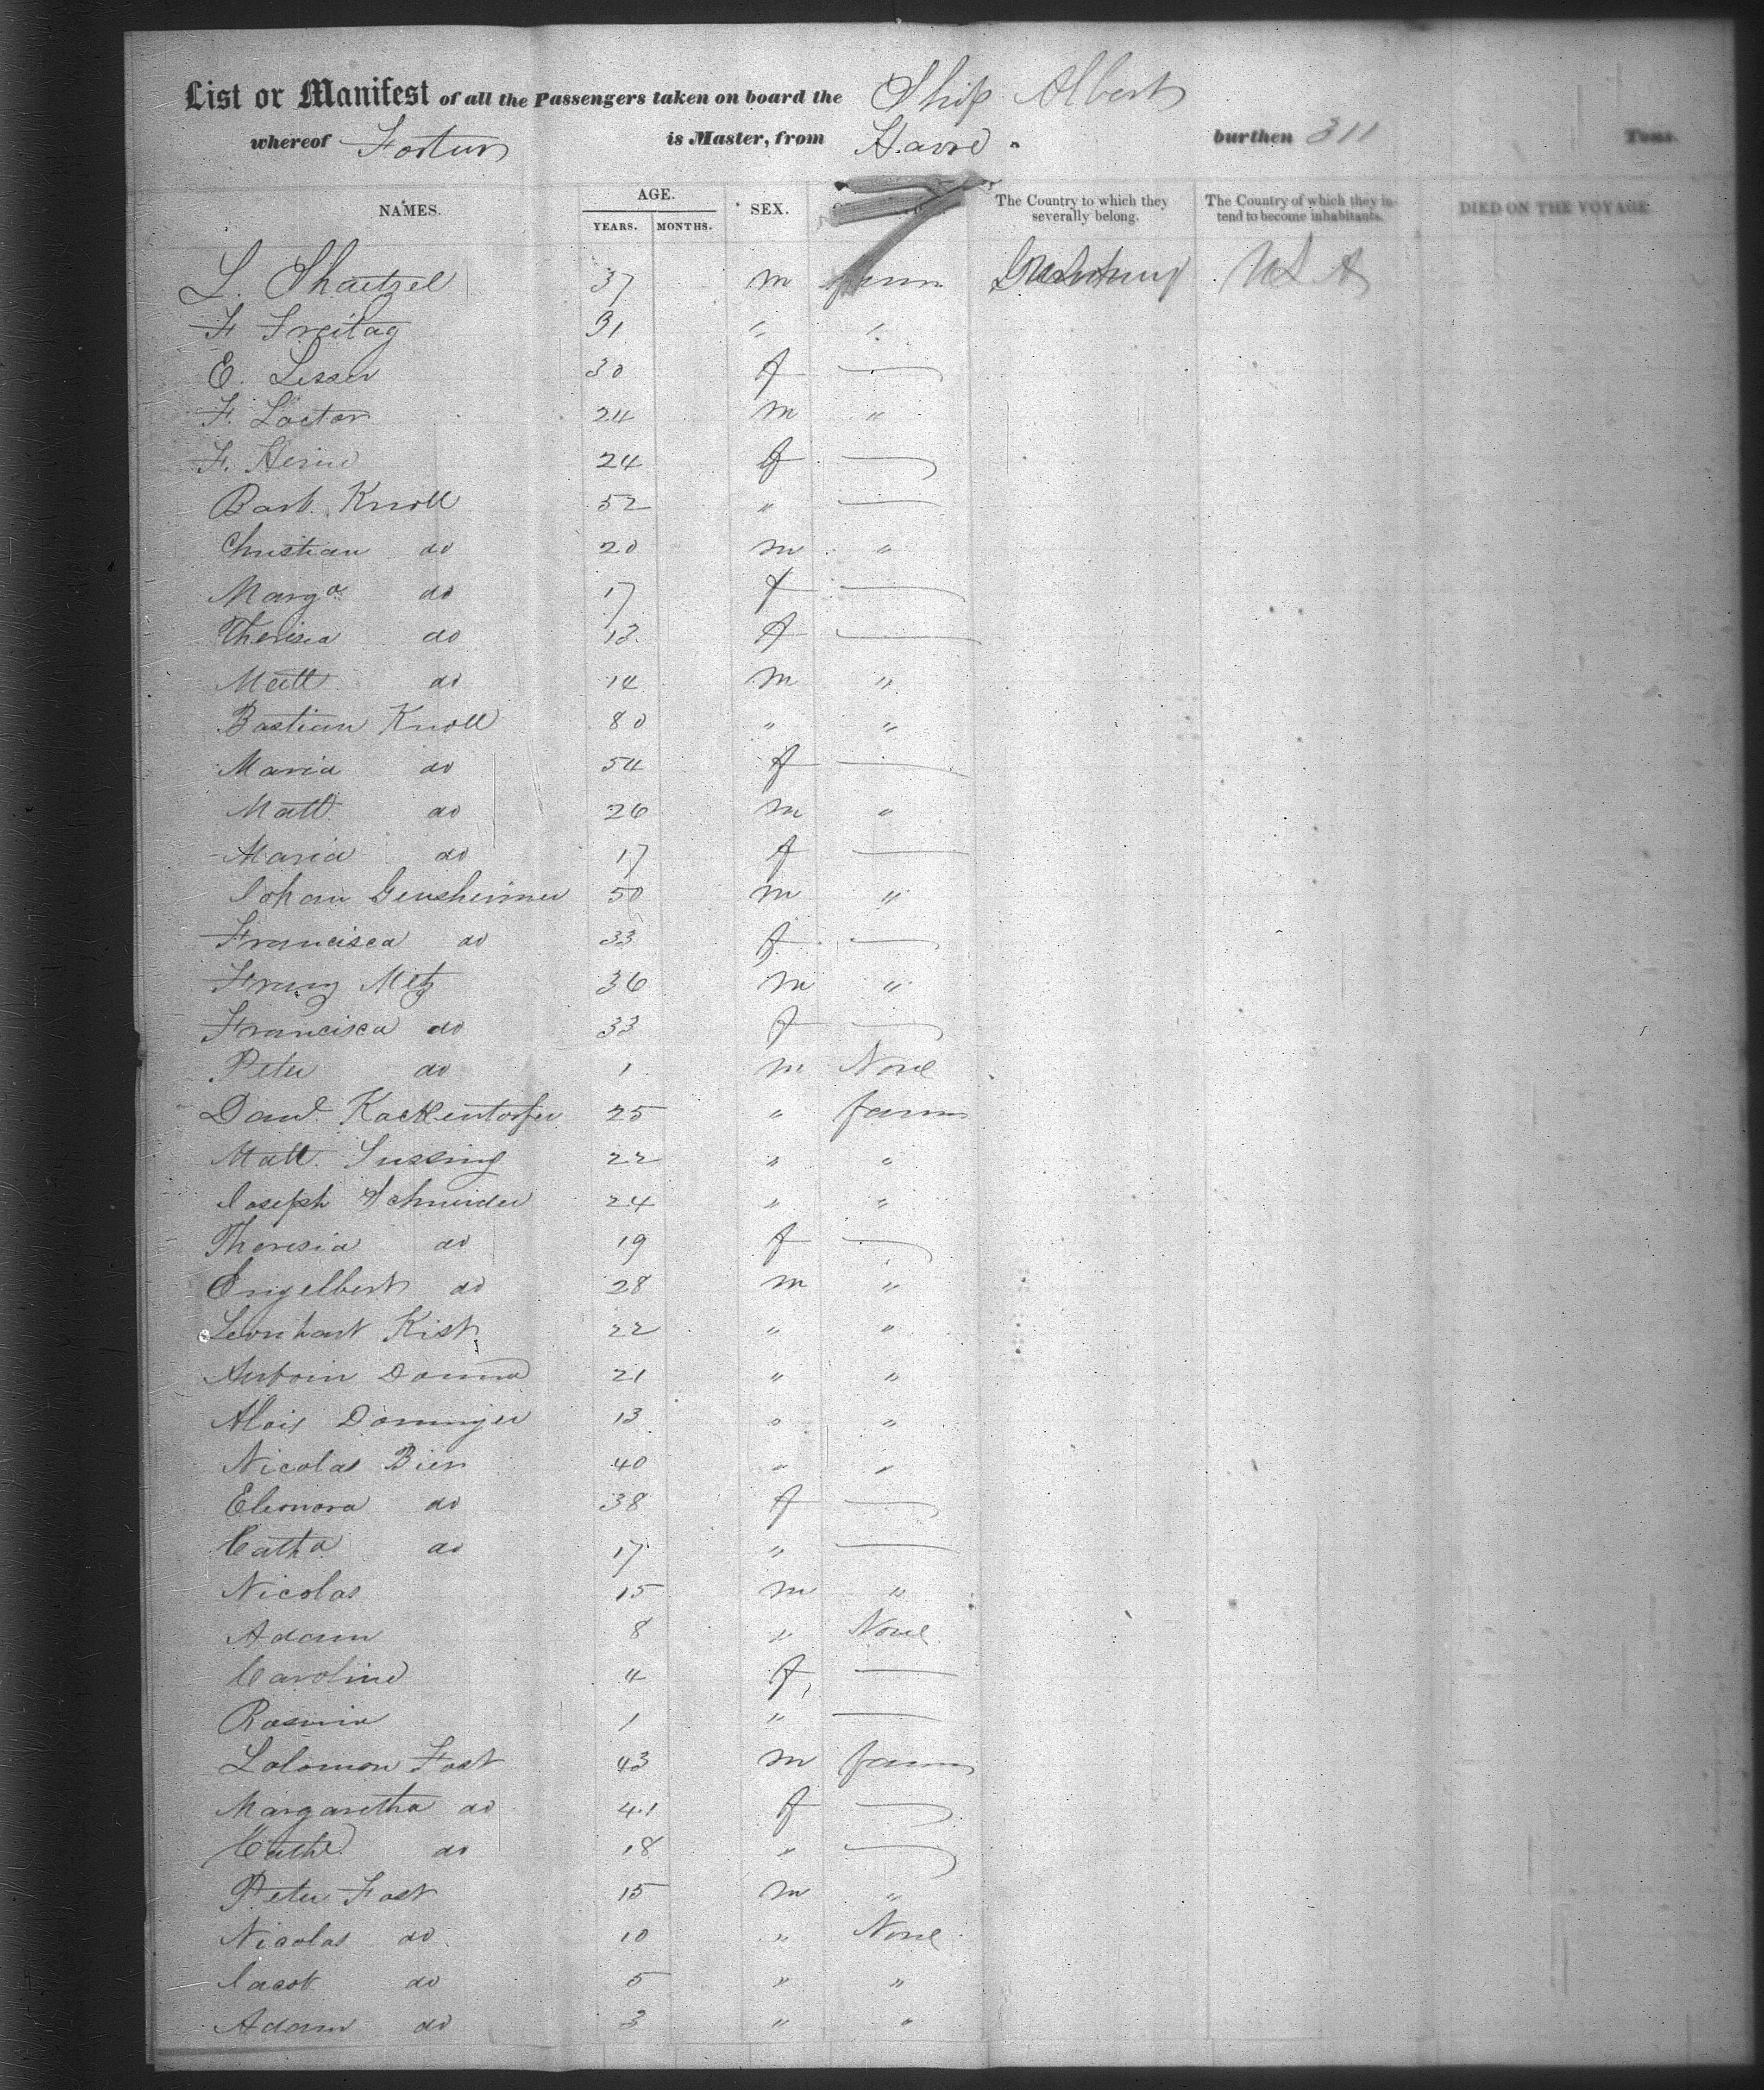 List or Manifest of all the Passengers taken on board the Ship Albert
whereof Fortun is Master, from Havre burthen 311 Tons.
NAMES. AGE. YEARS. MONTHS. SEX. The Country to which they severally belong. The Country of which they intend to become inhabitants. DIED ON THE VOYAGE
L. Shaetzel 37 m farm U S A
F Freitag 31 " "
E. Lesser 30 f —
F. Loctor 24 m "
F. 24 f —
Barb. Knoll 52 " —
Christian do 20 m "
Marga do 17 f —
Theresia do 13 f —
Matt do 14 m "
Bastian Knoll 80 " "
Maria do 54 f —
Matt do 26 m "
Maria do 17 f —
Johan Gensheimer 50 m "
Francisca do 33 f —
Franz Metz 36 m "
Francisca do 33 f —
Peter do 1 m None
Danl. Kackentorfer 25 " farm
Matt. Sussing 22 " "
Joseph Schneider 24 " "
Theresia do 19 f —
Engelbert do 28 m "
Leonhart Kist 22 " "
21 " "
Alois Dominger 13 " "
Nicolas Bier 40 " "
Eleonora do 38 f —
Catha do 17 " —
Nicolas 15 m "
Adam 8 " None
Caroline 4 f —
Rosina 1 " —
Solomon Fast 43 m farm
Margaretha do 41 f —
Cathe do 18 " —
Peter Fast 15 m "
Nicolas do 10 " None
Jacob do 5 " "
Adam do 3 " "